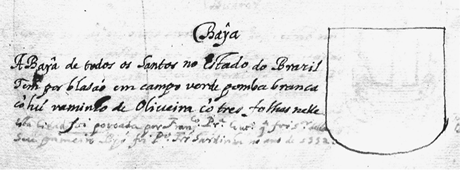 Baŷa
A Baŷa de todos os Santos no Estado do Brazil
Tem por blasão em campo verde pomba branca
cõ hũ raminho de Oliveira cõ tres folhas nelle
foi por
Seu primeiro foi Sardinha no ano de 1552